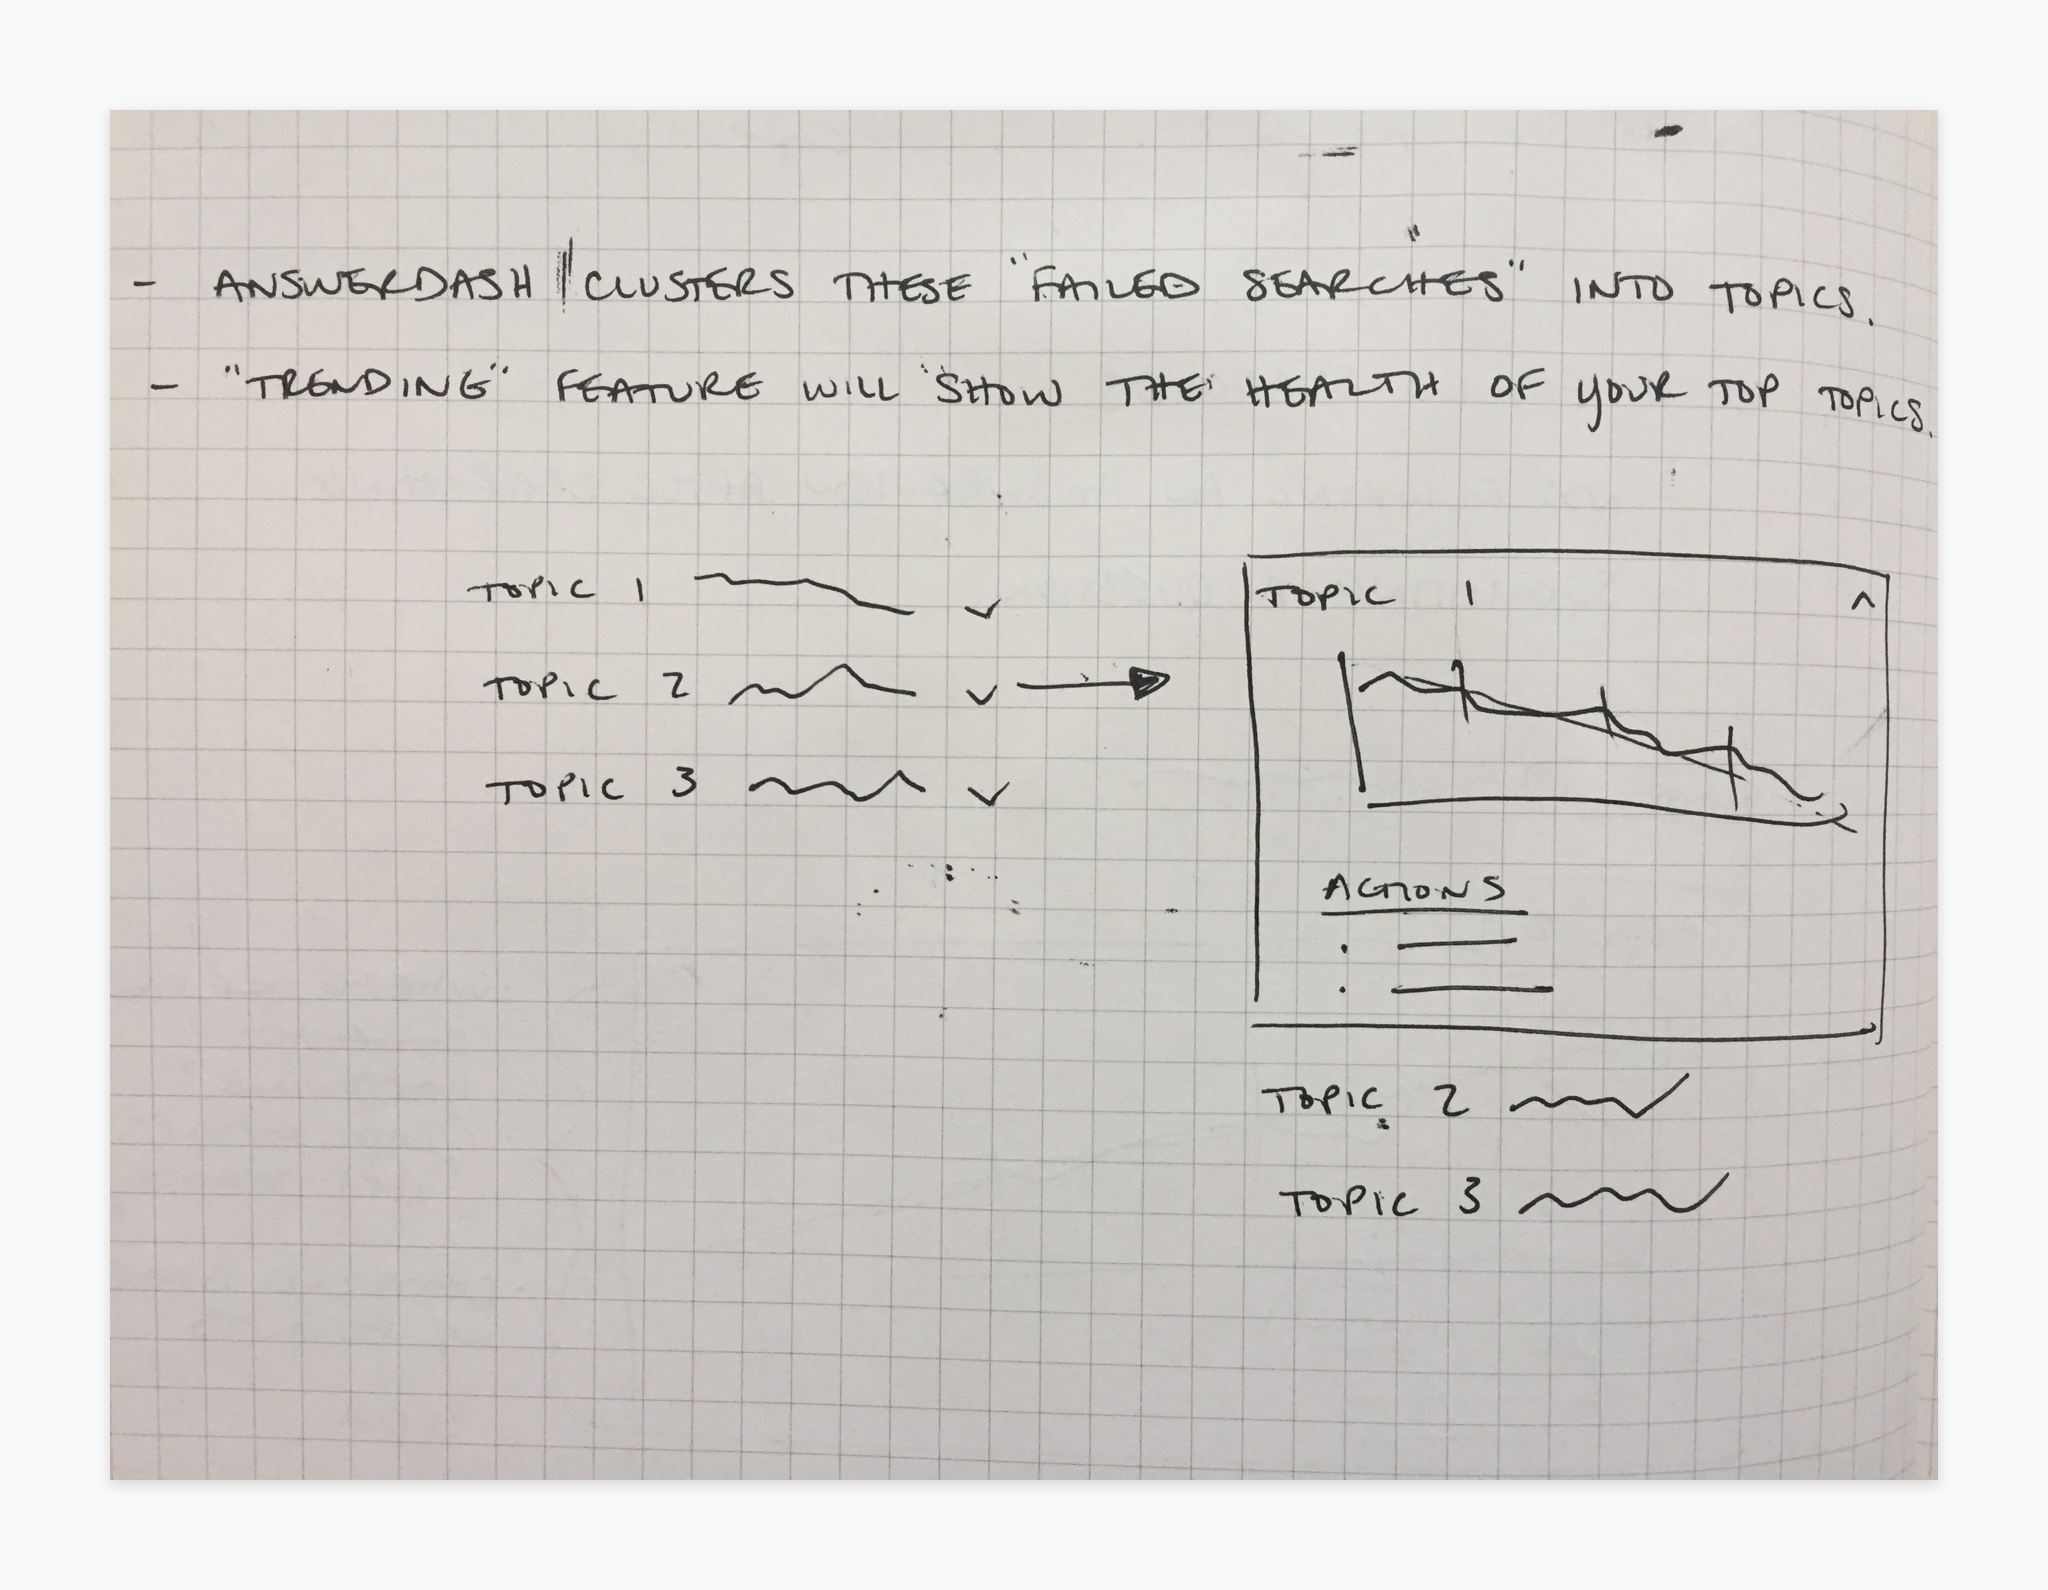 - ANSWERDASH CLUSTERS THESE "FAILED SEARCHES" INTO TOPICS.
- "TRENDING" FEATURE WILL SHOW THE HEALTH OF YOUR TOP TOPICS.
TOPIC 1
TOPIC 2
TOPIC 3
TOPIC 1
ACTIONS
TOPIC 2
TOPIC 3